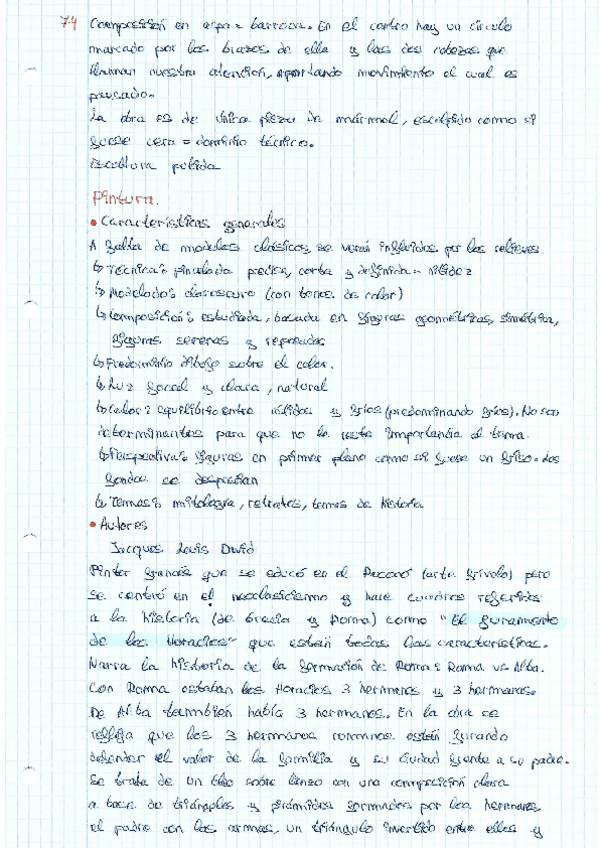 74 Composición en aspa = barroca. En el centro hay un círculo
marcado por los brazos de ella y las dos cabezas que
llaman nuestra atención, aportando movimiento el cual es
pausado.
La obra es de única pieza de mármol, esculpido como si
fuese cera = dominio técnico.
Escultura pulida
Pintura.
• Características generales
A falta de modelos clásicos, se verán influidos por los relieves
↳ Técnica: pincelada precisa, corta y definida = nitidez
↳ Modelado: claroscuro (con tonos de color)
↳ Composición: estudiada, basada en figuras geométricas, simétrica,
figuras serenas y reposadas
↳ Predominio dibujo sobre el color.
↳ Luz focal y clara, natural
↳ Color: equilibrio entre cálidos y fríos (predominando fríos). No son
determinantes para que no le reste importancia al tema.
↳ Perspectiva: figuras en primer plano como si fuese un friso. Los
fondos se desprecian
↳ Temas: mitología, retratos, temas de historia
• Autores
Jacques Louis David
Pintor francés que se educó en el Rococó (arte frívolo) pero
se centró en el neoclasicismo y hace cuadros referidos
a la historia (de Grecia y Roma) como "El juramento
de los Horacios" que están todas las características.
Narra la historia de la formación de Roma: Roma vs Alba.
Con Roma estaban los Horacios 3 hermanos y 3 hermanas.
De Alba también había 3 hermanos. En la obra se
refleja que los 3 hermanos romanos están jurando
defender el valor de la familia y su ciudad frente a su padre.
Se trata de un óleo sobre lienzo con una composición clara
a base de triángulos y pirámides formados por los hermanos,
el padre con las armas, un triángulo invertido entre ellos y